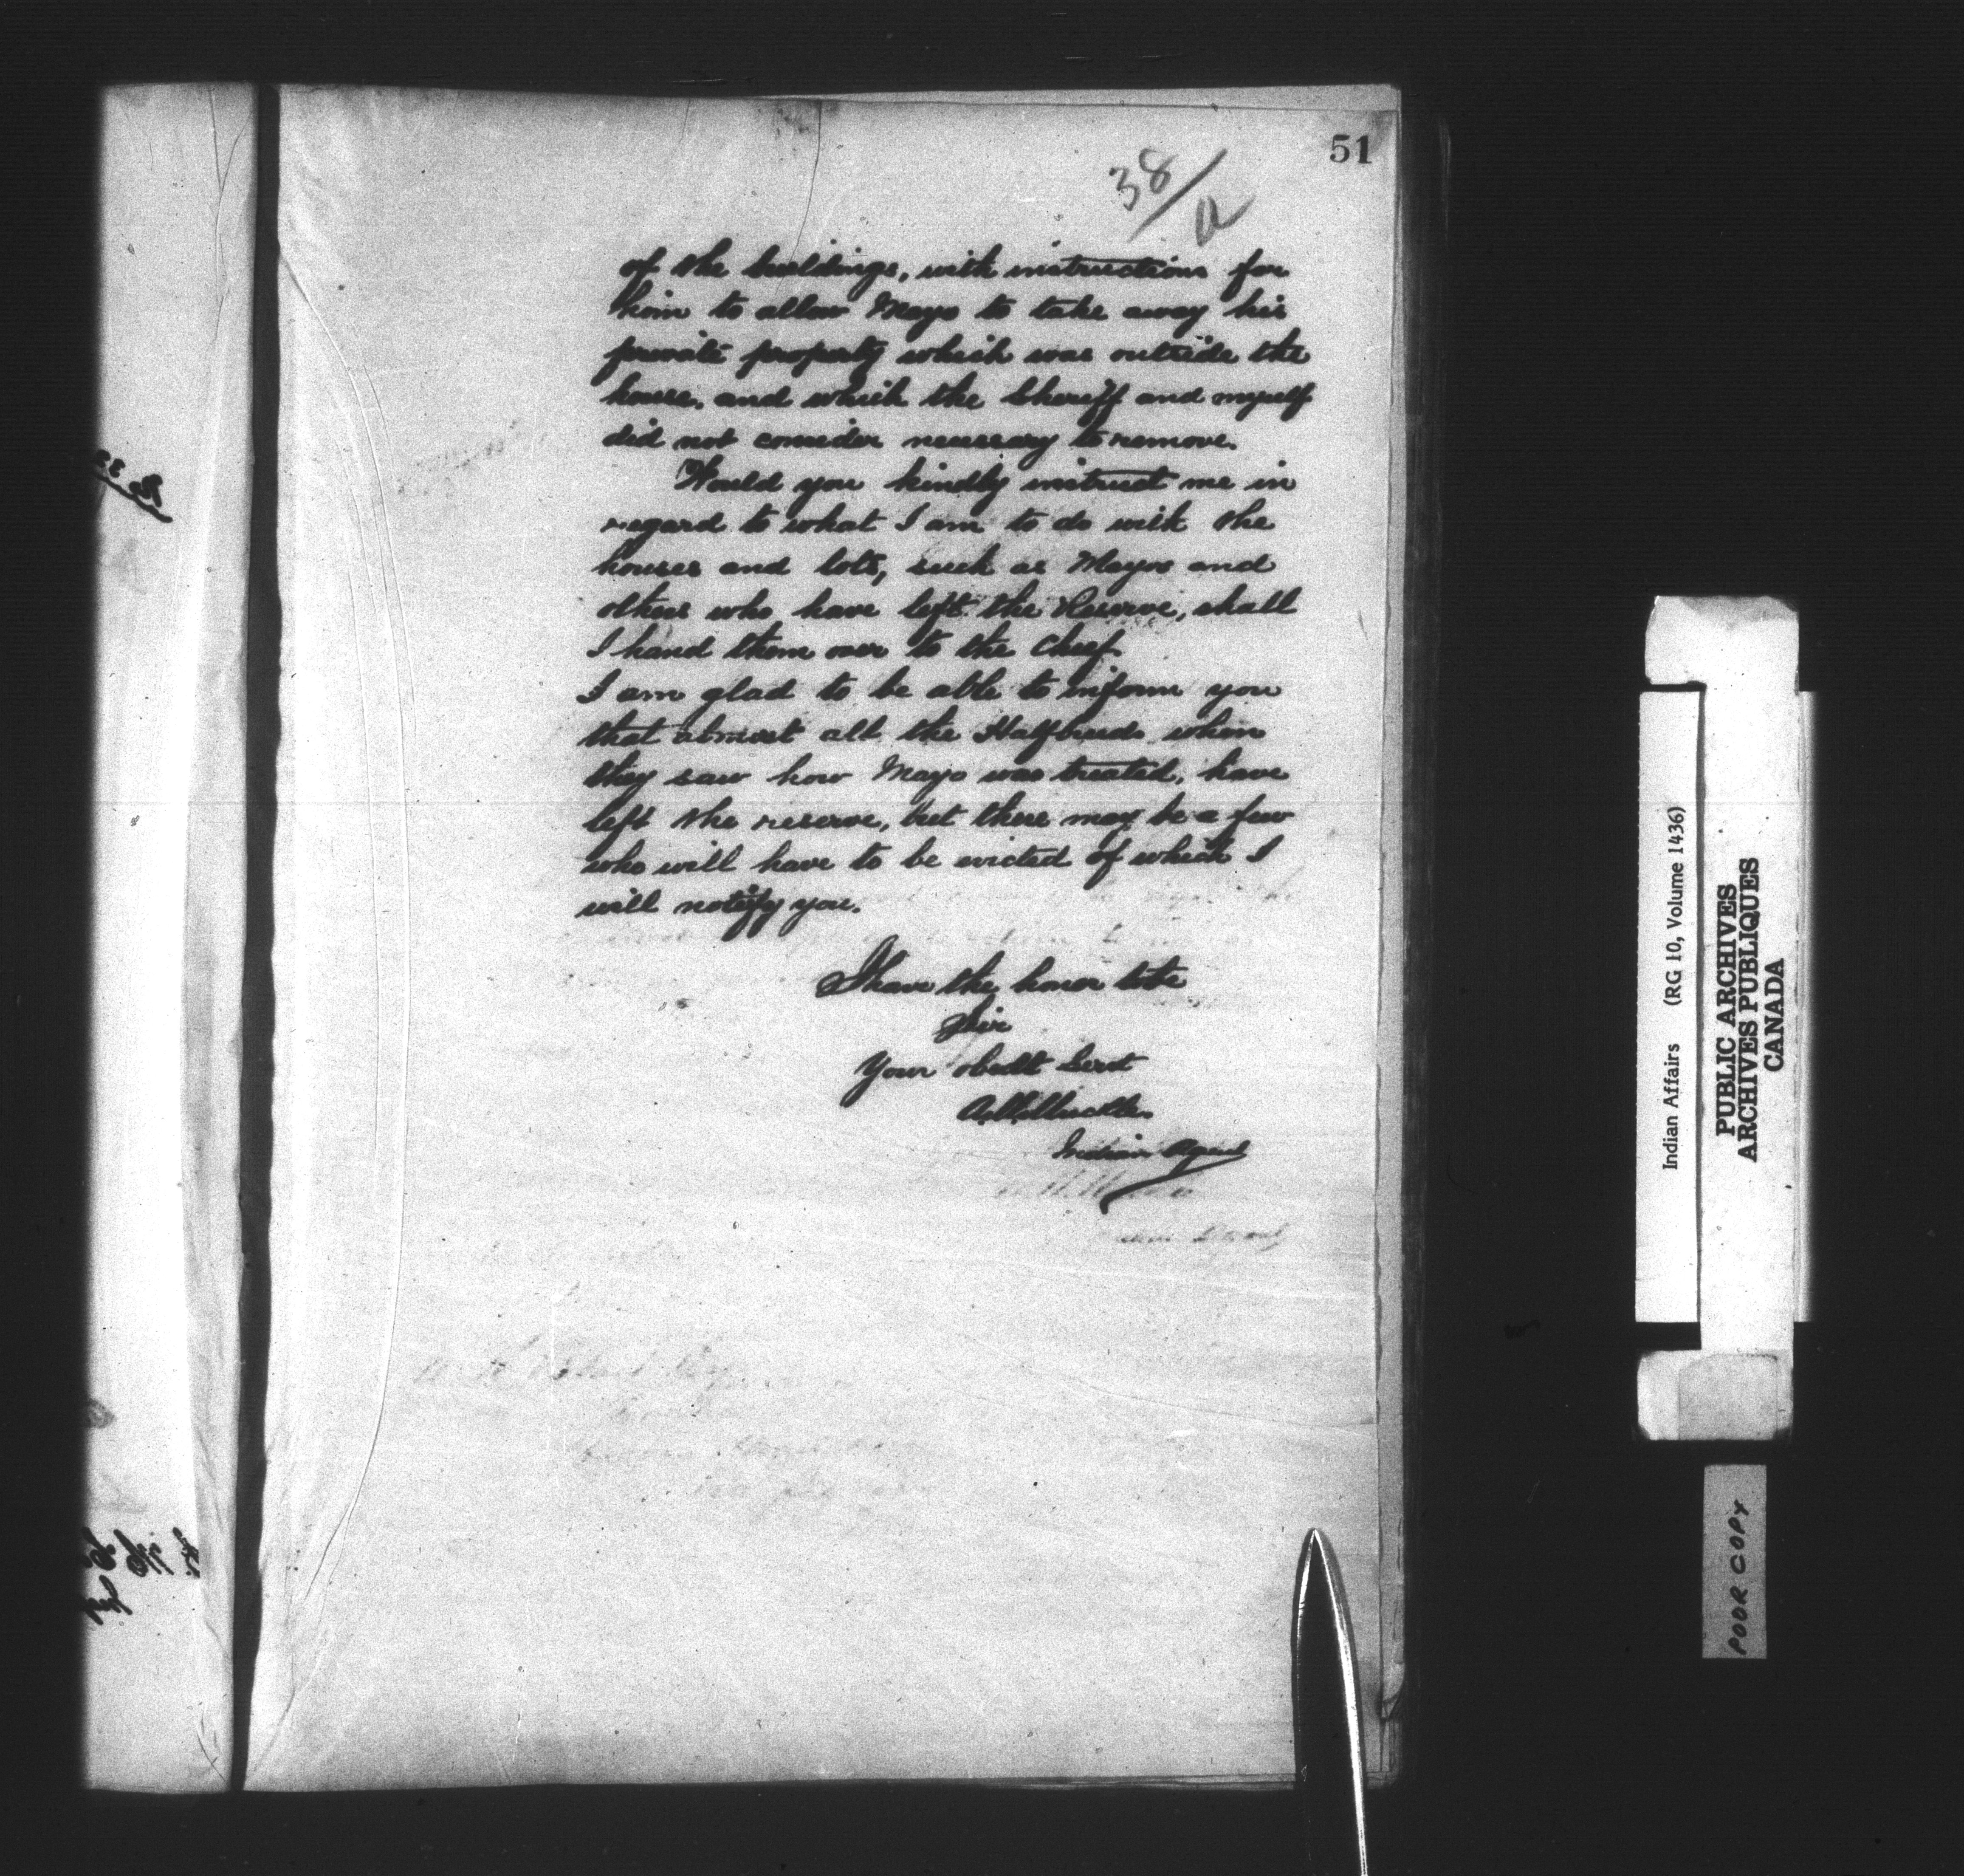 51
38/a
of the buildings, with instructions for
him to allow Mayo to take away his
private property which was outside the
house, and which the Sheriff and myself
did not consider necessary to remove.
Would you kindly instruct me in
regard to what I am to do with the
houses and lots, such as Mayos and
others who have left the Reserve, shall
I hand them over to the Chief.
I am glad to be able to inform you
that almost all the Halfbreeds when
they saw how Mayo was treated, have
left the reserve, but there may be a few
who will have to be evicted of which I
will notify you.
I have the honor to be
Sir
Your obedt Servt
Indian Agent
Indian Affairs (RG 10, Volume 1436)
PUBLIC ARCHIVES
ARCHIVES PUBLIQUES
CANADA
POOR COPY